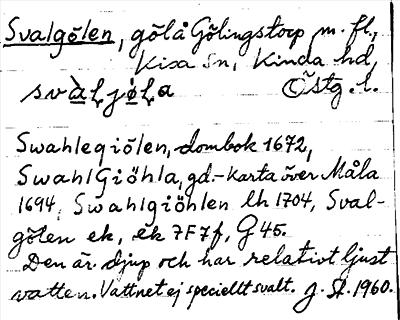 Svalgölen, göl å Gölingstorp m. fl.,
Kisa sn, Kinda hd,
svàLjö̀La Östg. l.
Swahlegiölen, dombok 1672,
Swahl Giöhla, gd.-karta över Måla
1694, Swahlgiöhlen lh 1704, Sval-
gölen ek, ek 7F7f, G 45.
Den är djup och har relativt ljust
vatten. Vattnet ej speciellt svalt. G. St. 1960.